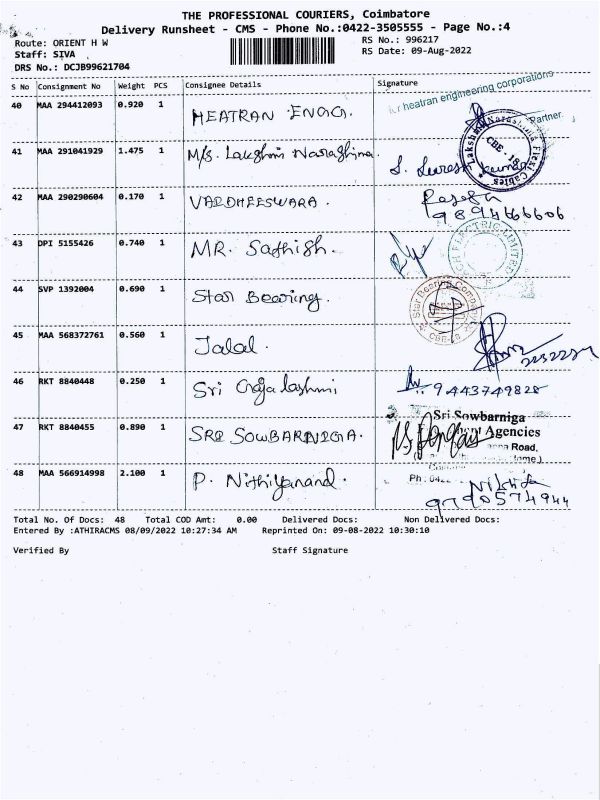 THE PROFESSIONAL COURIERS, Coimbatore
Delivery Runsheet - CMS - Phone No.:0422-3505555 - Page No.:4
Route: ORIENT H W
RS No.: 996217
Staff: SIVA
RS Date: 09-Aug-2022
DRS No.: DCJB99621704
S No Consignment No Weight PCS Consignee Details Signature
for heatran engineering corporations
40 MAA 294412093 0.920 1 HEATRAN ENGG.
Partner.
41 MAA 291041929 1.475 1 M/s. Lakshmi Narashima
Lakshmi Narashima Flexi Cables CBE - 18
S. Suresh
42 MAA 290290604 0.170 1 VARDHEESWARA.
43 DPI 5155426 0.740 1 MR. Sathish.
ELECTRIC LIMITED
44 SVP 1392004 0.690 1 Star Bearing.
Star Bearing Company CBE-18
45 MAA 568372761 0.560 1 Jalal.
46 RKT 8840448 0.250 1 Sri Gajalashmi
9443749828
47 RKT 8840455 0.890 1 SRI SOWBARNIGA.
Sri Sowbarniga
Agencies
Road,
48 MAA 566914998 2.100 1 P. Nithiyanand.
Ph: 0422
Nikhila
9790574944
Total No. Of Docs: 48 Total COD Amt: 0.00 Delivered Docs: Non Delivered Docs:
Entered By :ATHIRACMS 08/09/2022 10:27:34 AM Reprinted On: 09-08-2022 10:30:10
Verified By Staff Signature